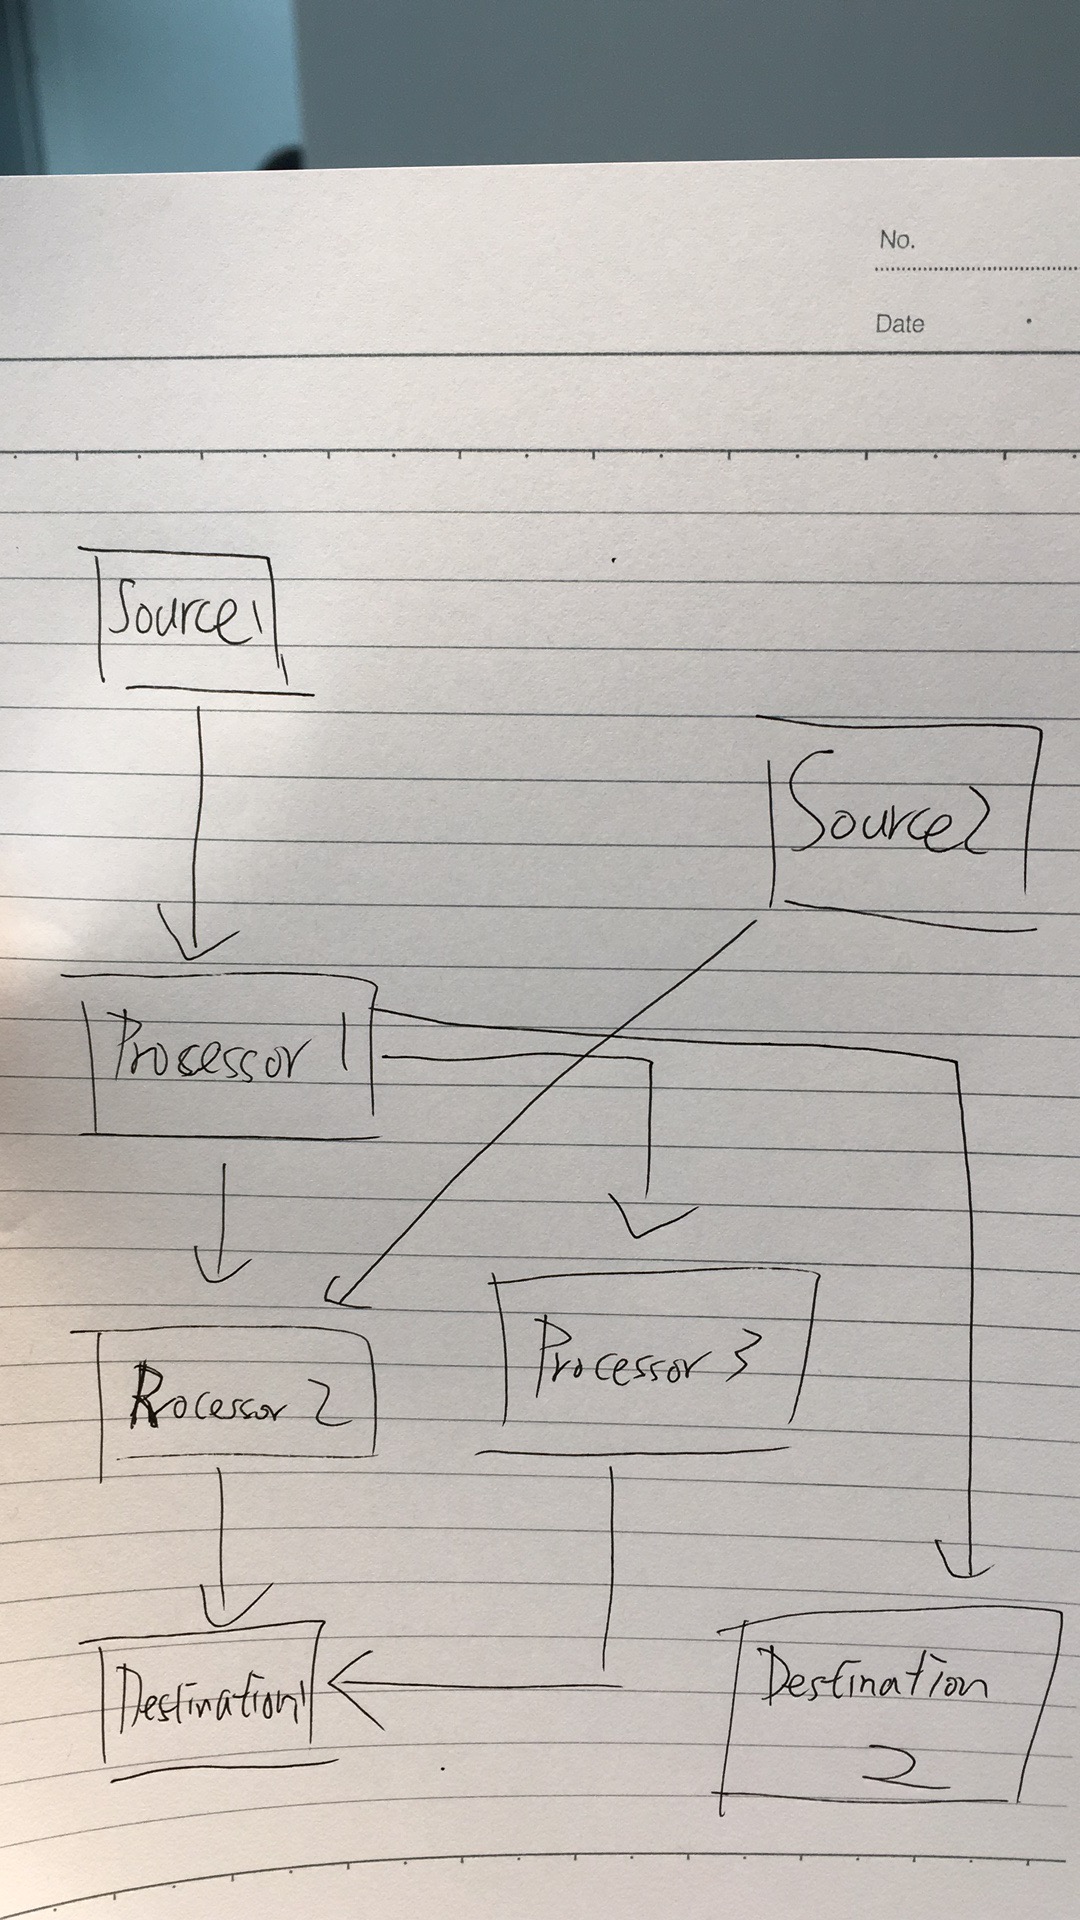 No.
Date
Source1
Source2
Prosessor 1
Processor 3
Rocessor 2
Destination1
Destination
2